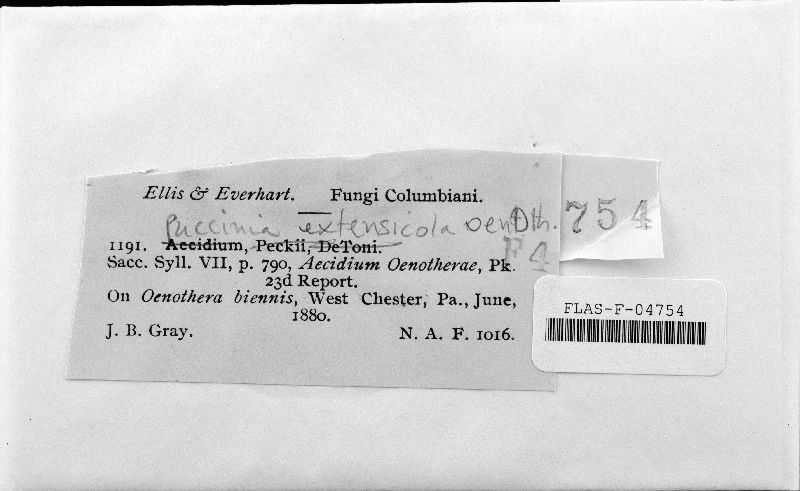 Ellis & Everhart. Fungi Columbiani.
Puccinia extensicola oenoth.
1191. Aecidium, Peckii, DeToni.
Sacc. Syll. VII, p. 790, Aecidium Oenotherae, Pk.
23d Report.
On Oenothera biennis, West Chester, Pa., June,
1880.
J. B. Gray. N. A. F. 1016.
754
F4
FLAS-F-04754